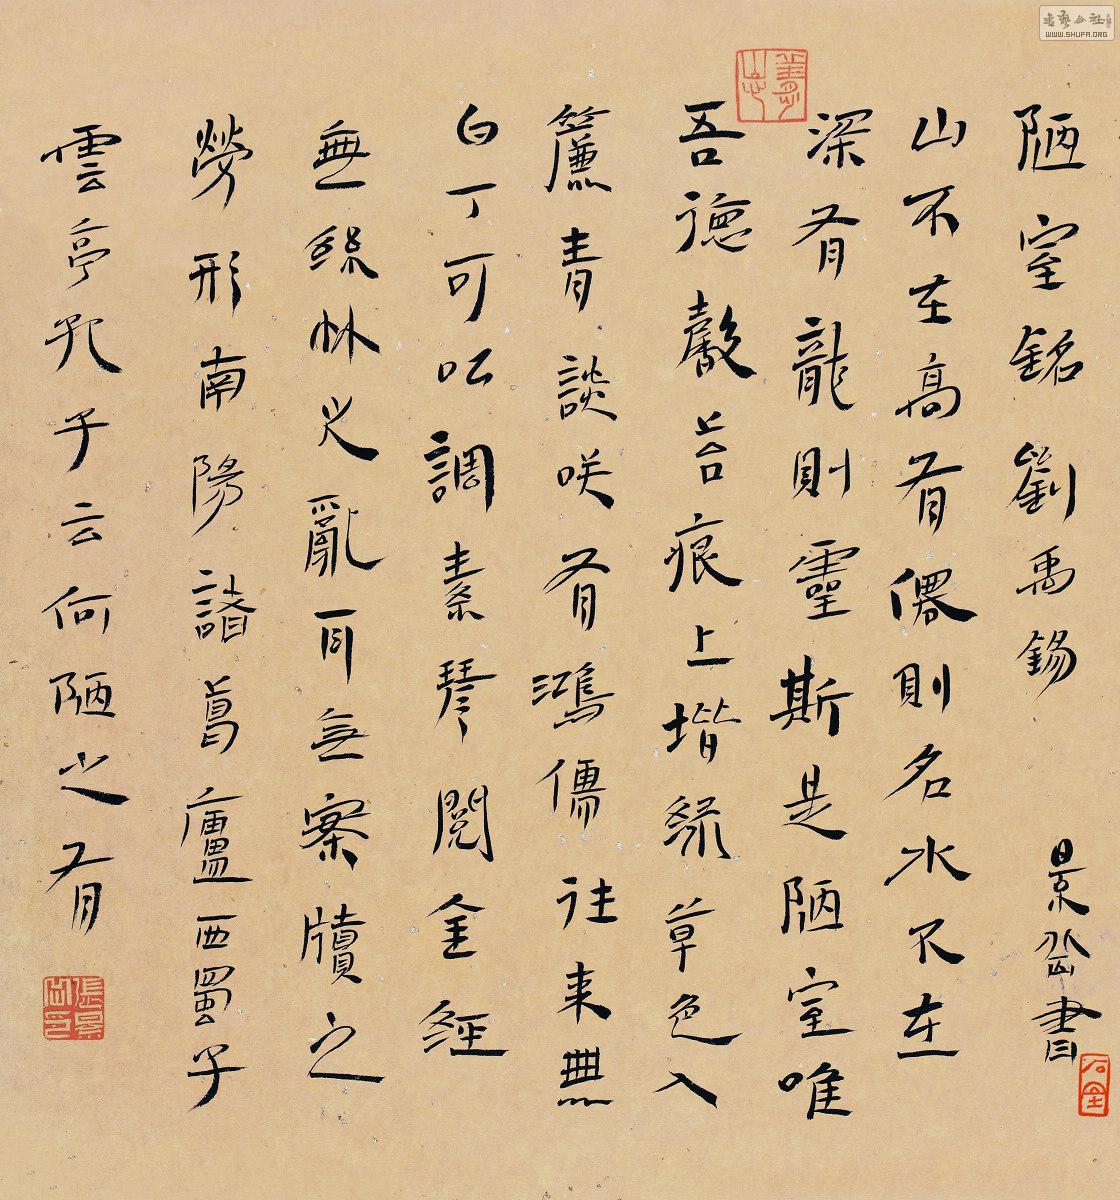 陋室銘 劉禹錫 景 書
山不在高有僊則名水不在
深有龍則靈斯是陋室唯
吾德馨苔痕上堦緑草色入
簾青談咲有鴻儒往來無
白丁可以調素琴閱金經
無絲竹之亂耳無案牘之
勞形南陽諸葛廬西蜀子
雲亭孔子云何陋之有
WWW.SHUFA.ORG